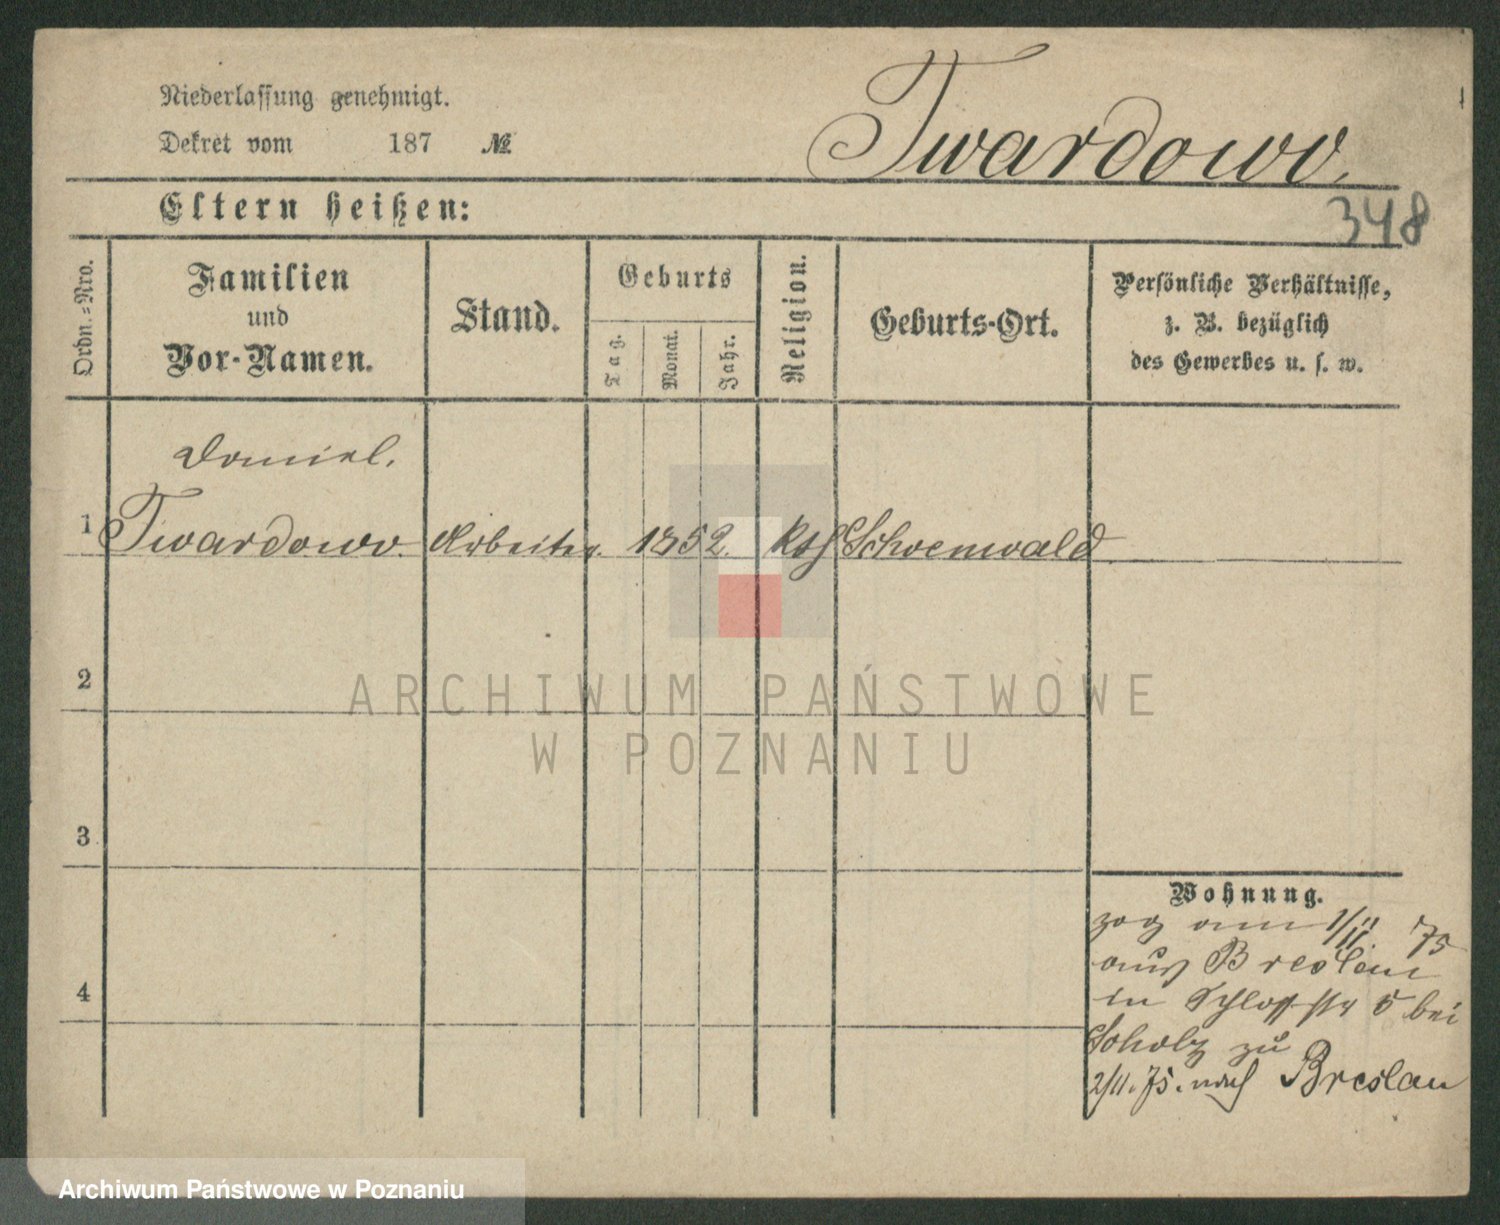 Niederlassung genehmigt.
Dekret vom 187 №
Twardowo.
Eltern heißen:
348
Ordn.=Nro.
Familien
und
Vor-Namen.
Stand.
Geburts
Tag.
Monat.
Jahr.
Religion.
Geburts-Ort.
Persönliche Verhältnisse,
z. B. bezüglich
des Gewerbes u. s. w.
Daniel.
1 Twardowo. Arbeiter. 1852. Kth Schoenwald
2
3
4
Wohnung.
zog am 1/11. 75
aus Breslau
in Schloßstr 5 bei
Scholz zu
2/11. 75. nach Breslau
ARCHIWUM PAŃSTWOWE
W POZNANIU
Archiwum Państwowe w Poznaniu